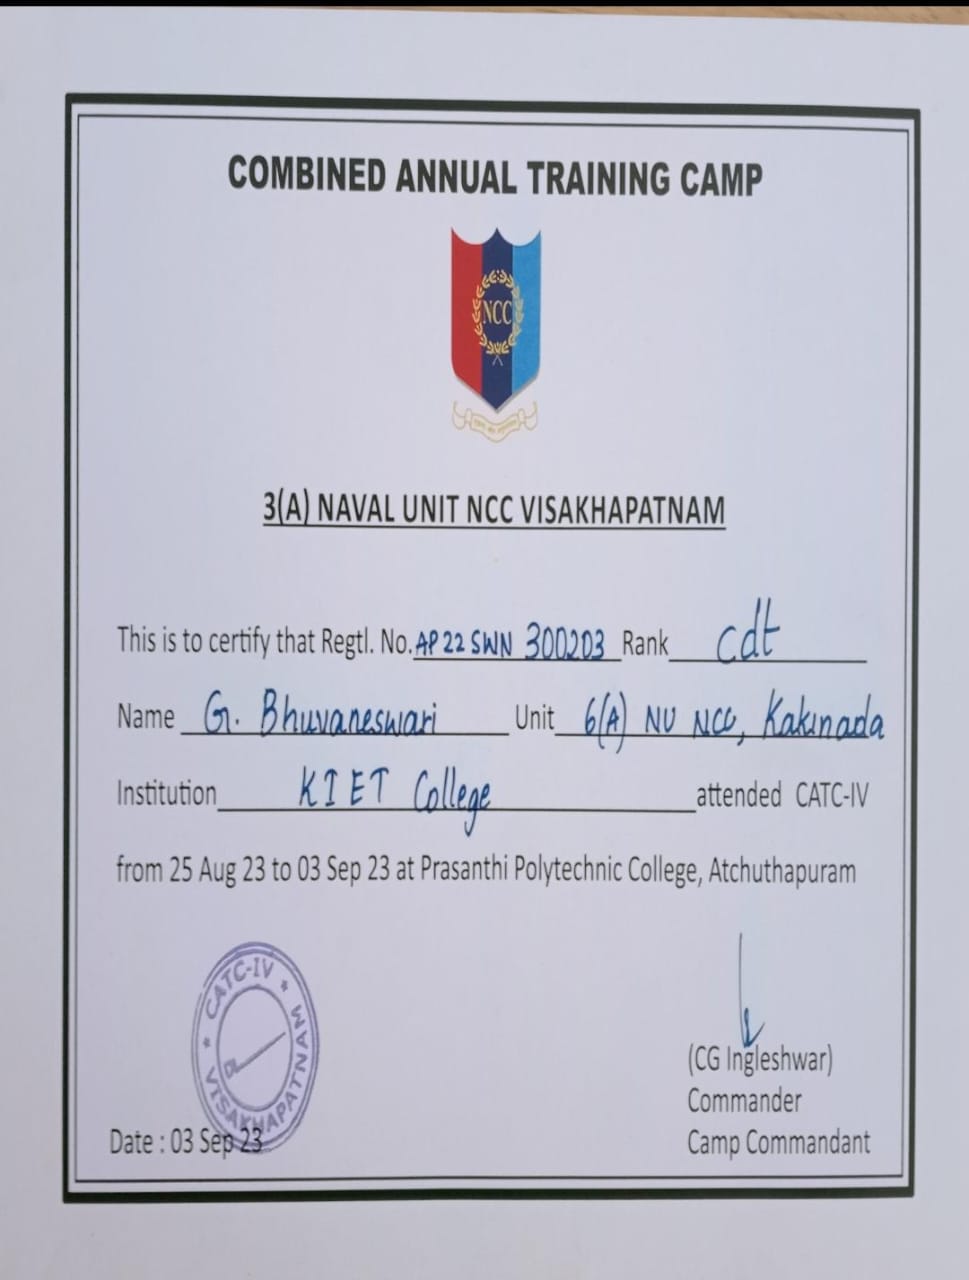 COMBINED ANNUAL TRAINING CAMP
NCC
3(A) NAVAL UNIT NCC VISAKHAPATNAM
This is to certify that Regtl. No. AP 22 SWN 300203 Rank cdt
Name G. Bhuvaneswari Unit 6(A) NU NCC, Kakinada
Institution KIET College attended CATC-IV
from 25 Aug 23 to 03 Sep 23 at Prasanthi Polytechnic College, Atchuthapuram
* CATC-IV *
VISAKHAPATNAM
(CG Ingleshwar)
Commander
Date : 03 Sep 23 Camp Commandant